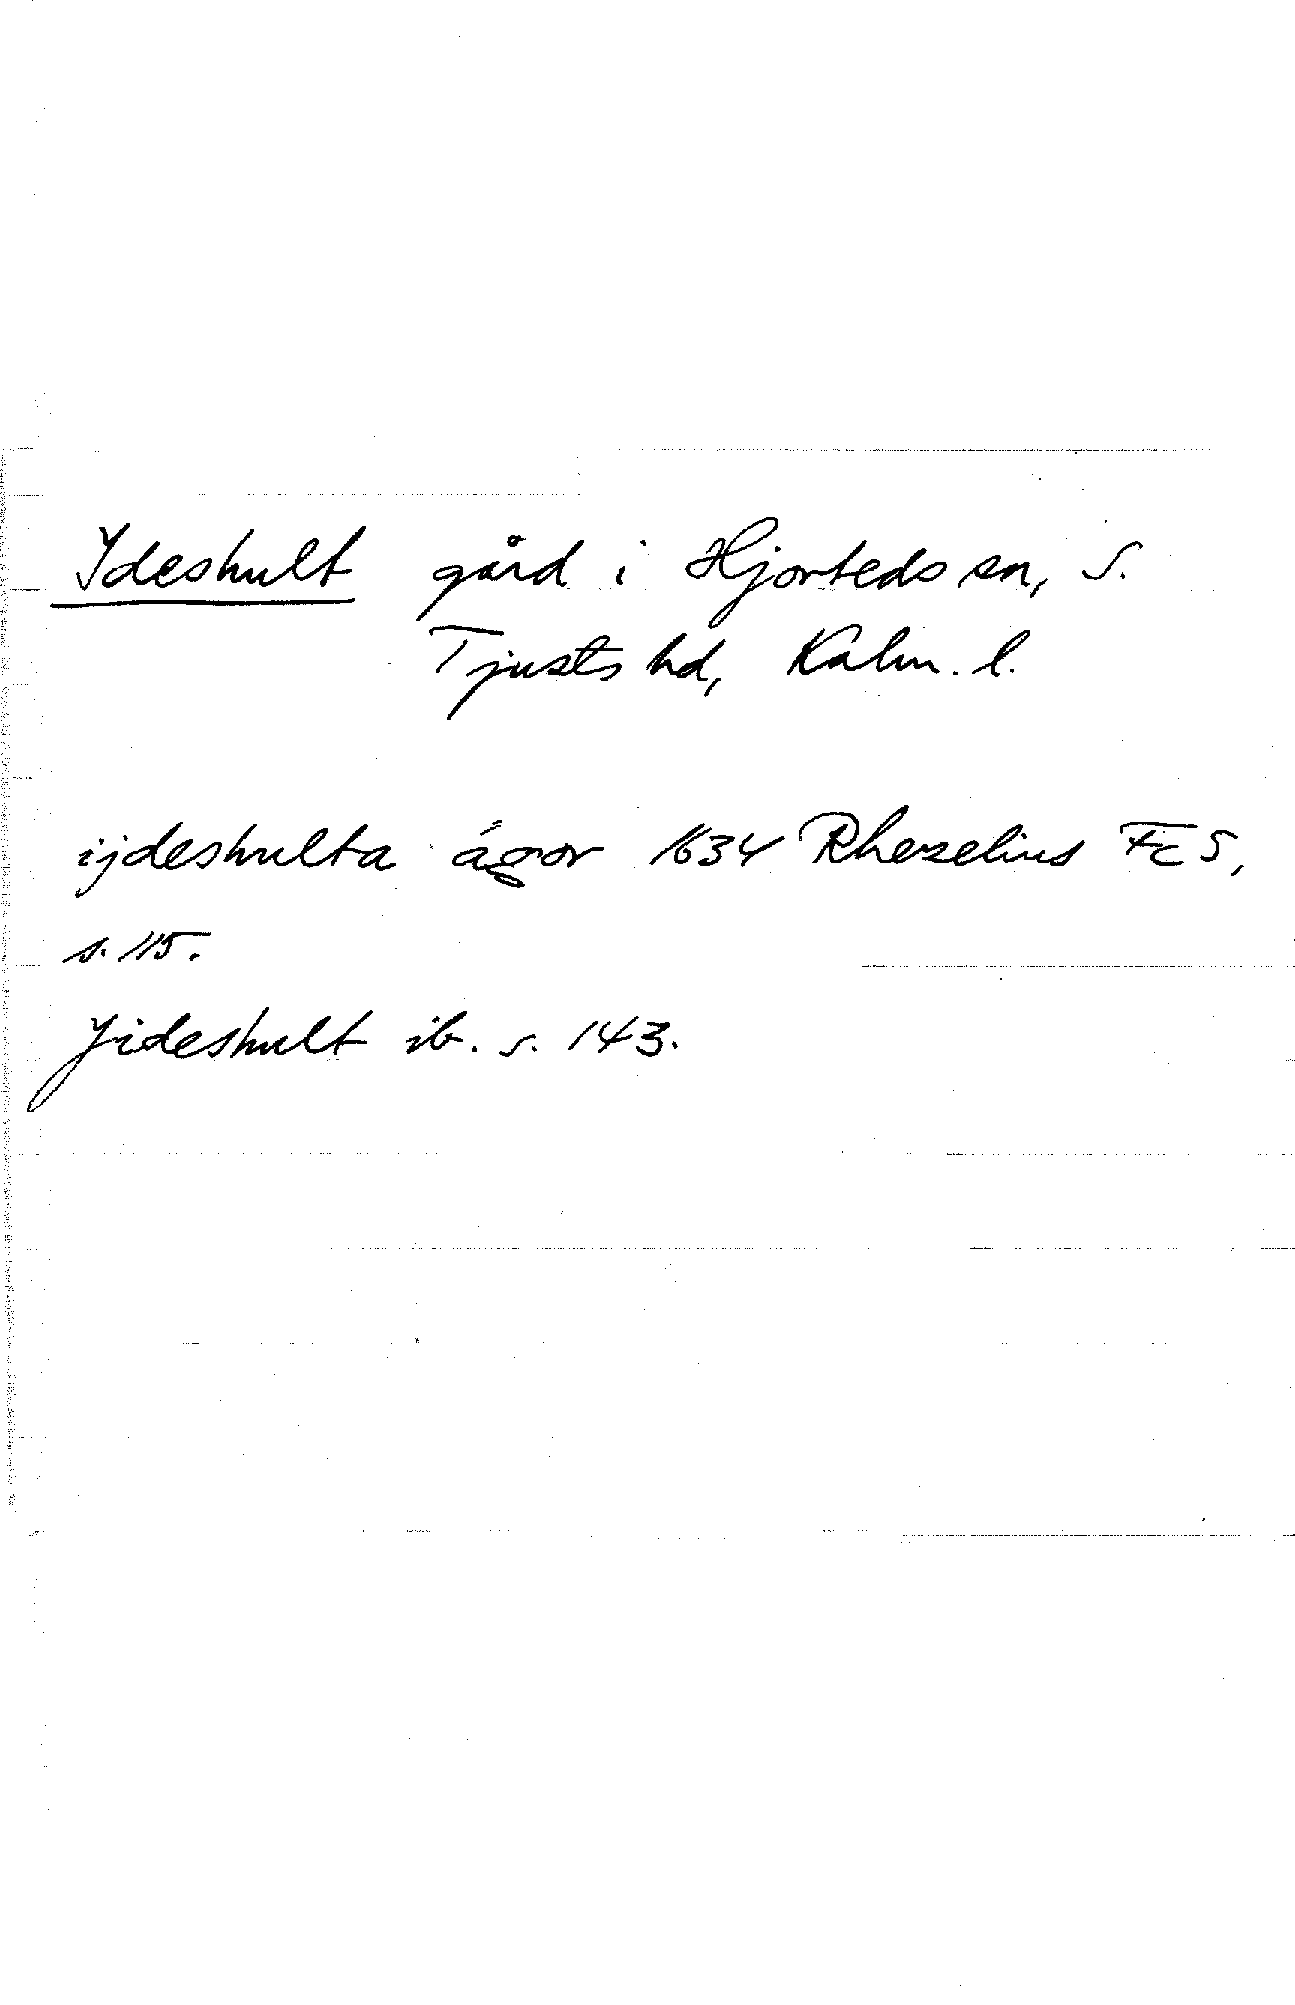 Ydeshult gård i Hjorteds sn, S.
Tjusts hd, Kalm. l.
ijdeshulta ágor 1634 Rhezelius Fc5,
s. 115.
Jideshult ib. s. 143.